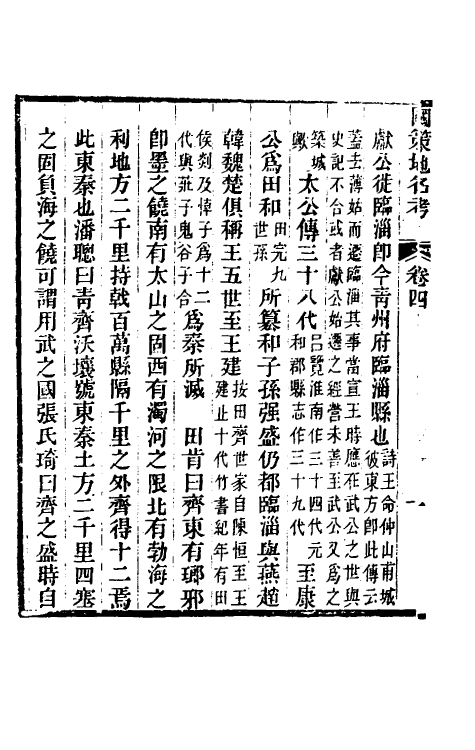 國策地名考 卷四 一
獻公徙臨淄卽今靑州府臨淄縣也詩王命仲山甫城
彼東方卽此傳云
蓋去薄姑而遷臨淄其事當宣王時應在武公之世與
史記不合或者獻公始遷之經營未善至武公又爲之
築城
歟 太公傳三十八代呂覽淮南作三十四代元
和郡縣志作三十九代 至康
公爲田和田完九
世孫 所纂和子孫强盛仍都臨淄與燕趙
韓魏楚俱稱王五世至王建按田齊世家自陳恒至王
建止十代竹書紀年有田
侯剡及悼子爲十二
代與莊子鬼谷子合 爲秦所滅 田肯曰齊東有瑯邪
卽墨之饒南有太山之固西有濁河之限北有勃海之
利地方二千里持戟百萬縣隔千里之外齊得十二焉
此東秦也潘聰曰靑齊沃壤號東秦土方二千里四塞
之固負海之饒可謂用武之國張氏琦曰齊之盛時自